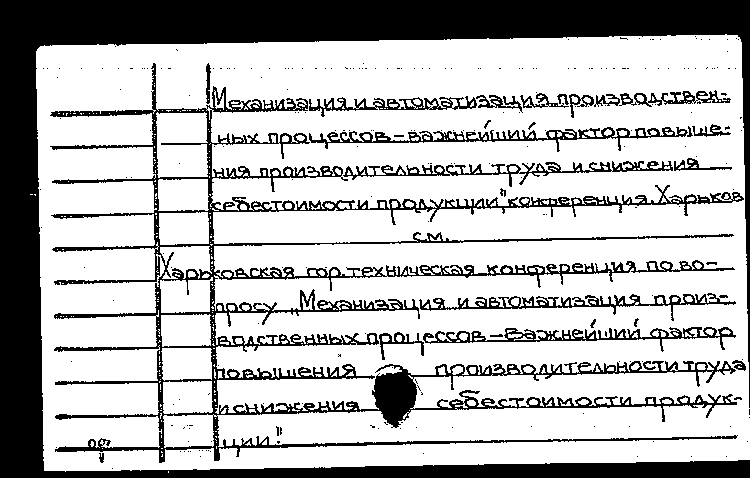 Механизация и автоматизация производствен-
ных процессов - важнейший фактор повыше-
ния производительности труда и снижения
себестоимости продукции", конференция. Харьков
см.
Харьковская гор. техническая конференция по во-
просу „Механизация и автоматизация произ-
водственных процессов - важнейший фактор
повышения производительности труда
и снижения себестоимости продук-
ции".